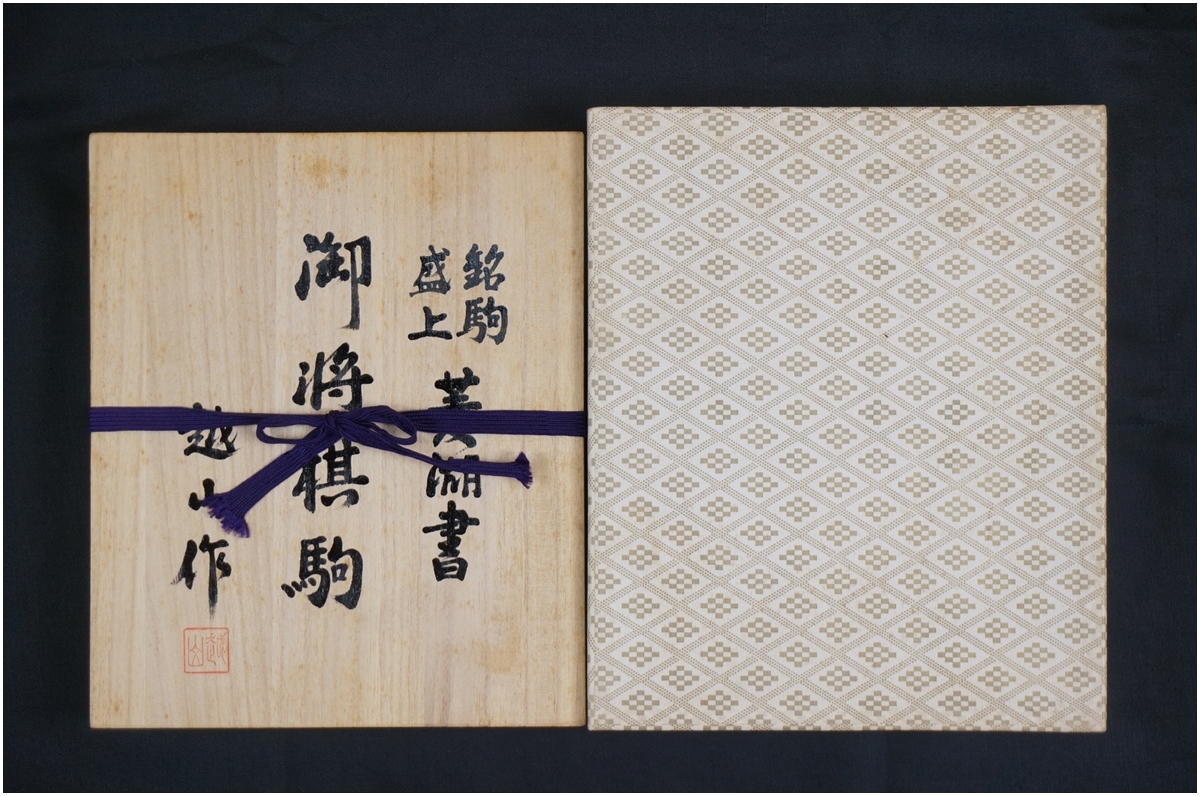 銘駒
盛上
美湖書
御将棋駒
越山作
越山